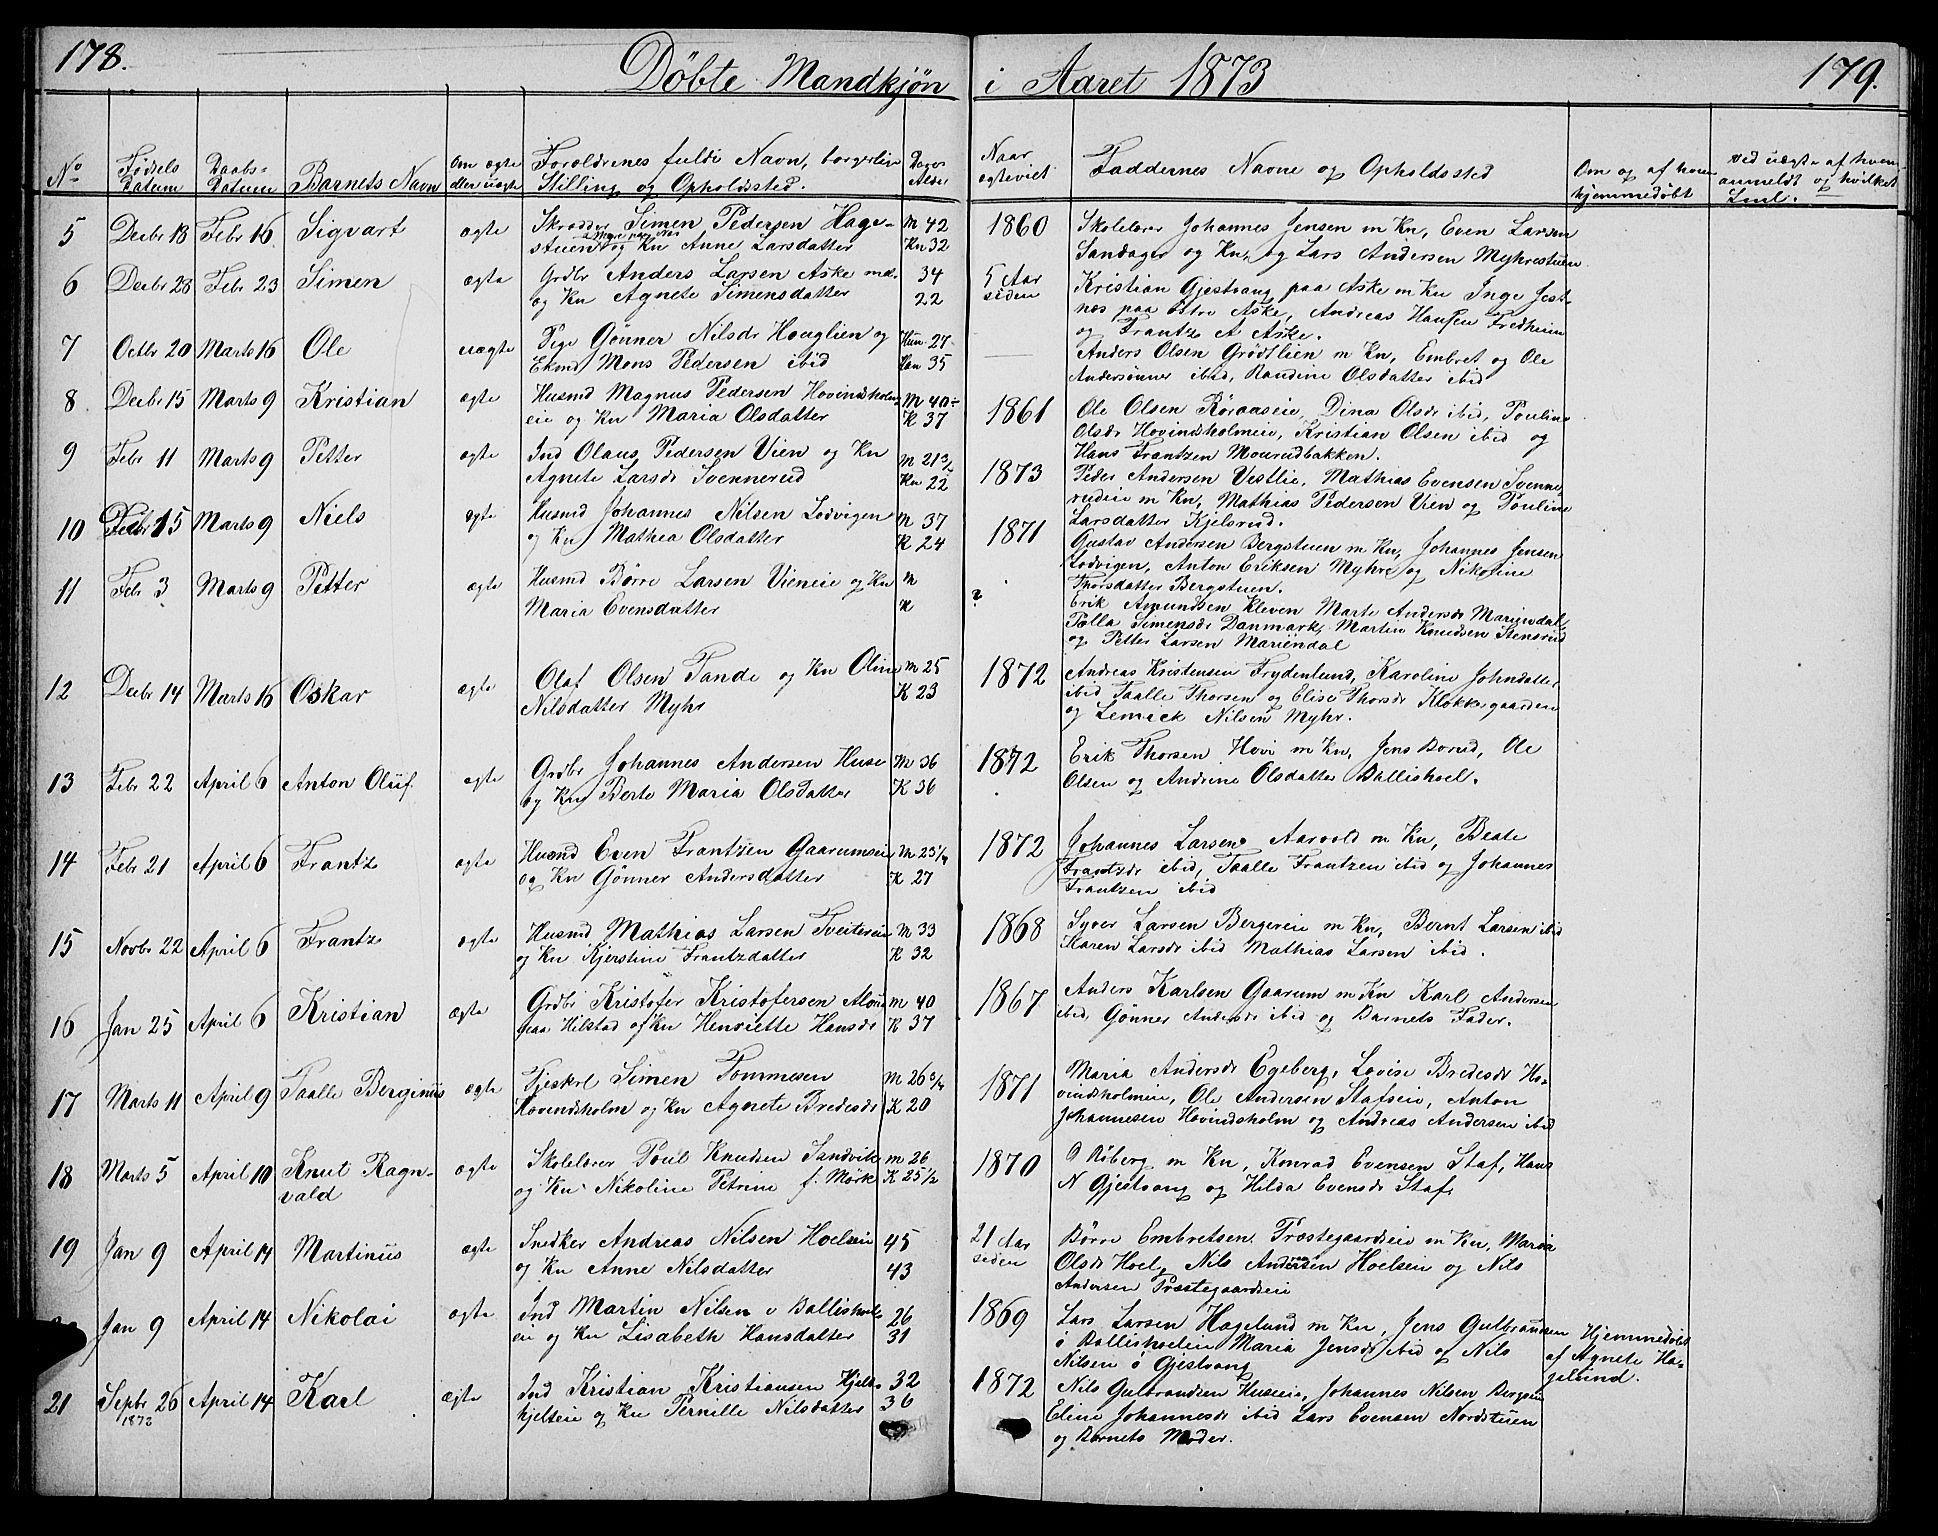 178.
Döbte Mandkjön
i Aaret 1873
179.
No
Födsels Datum
Daabs-Datum
Barnets Navn
Om ægte eller uægte
Forældrenes fulde Navn, borgerlige Stilling og Opholdssted.
Deres Alder
Naar ægteviet
Faddernes Navne og Opholdssted
Om og af hvem hjemmedöbt
Ved uægte af hvem anmeldt og hvilket
5 Decbr 18 Febr 16 Sigvart ægte Skrædder Simen Pedersen Hage- M 42
steien og Kn Anne Larsdatter Kn 32
1860 Skolelærer Johannes Jensen m Kn, Even Larsen
Sandager og Kn, og Lars Andersen Myhrestuen
6 Decbr 28 Febr 23 Simen ægte Grdbr Anders Larsen Aske 34
og Kn Agnete Simensdatter 22
5 Aar siden Kristian Gjestvang paa Aske m Kn Inge Jest-
nes paa östre Aske, Andreas Hansen Fredheim
og Frantz A Aske.
7 Octbr 20 Marts 16 Ole uægte Pige Gönner Nilsdr Houglien og Hun 27
Ekmd Mons Pedersen ibid Han 35
Anders Olsen Grödtlien m Kn, Embret og Ole
Andersönner ibid, Randine Olsdatter ibid
8 Decbr 15 Marts 9 Kristian ægte Husmd Magnus Pedersen Hovindsholms M 40
eie og Kn Maria Olsdatter K 37
1861 Ole Olsen Röraaseie, Dina Olsdr ibid, Pouline
Olsdr Hovindsholmeie, Kristian Olsen ibid og
Hans Frantzen Mourudbakken.
9 Febr 11 Marts 9 Petter ægte Ind Olaus Pedersen Vien og Kn M 21 3/4
Agnete Larsdr Svennerud Kn 22
1873 Peder Andersen Vestlie, Mathias Evensen Svenne-
rudeie m Kn, Mathias Pedersen Vien og Pouline
Larsdatter Kjelsrud.
10 Febr 15 Marts 9 Niels ægte Husmd Johannes Nilsen Lodvigen M 37
og Kn Mathea Olsdatter K 24
1871 Gustav Andersen Bergstuen m Kn, Johannes Jensen
Lodvigen, Anton Eriksen Myhre og Nikoline
Thorsdatter Bergstuen.
11 Febr 3 Marts 9 Petter ægte Husmd Börre Larsen Vieneie og Kn M
Maria Evensdatter K
? Erik Amundsen Kleven Marte Andersdr Mariendal,
Pölla Simensdr Danmark, Martin Knudsen Stensrud
og Petter Larsen Mariendal
12 Decbr 14 Marts 16 Oskar ægte Olaf Olsen Tande og Kn Oline M 25
Nilsdatter Myhr K 23
1872 Andreas Kristensen Frydenlund, Karoline Johnsdatter
ibid Taalle Thorsen og Elise Thorsdr Klokkergaarden
og Lemeck Nilsen Myhr.
13 Febr 22 April 6 Anton Oluf ægte Grdbr Johannes Andersen Huse M 36
og Kn Berte Maria Olsdatter K 36
1872 Erik Thorsen Hovi m Kn, Jens Borud, Ole
Olsen og Andrine Olsdatter Ballishoel.
14 Febr 21 April 6 Frantz ægte Husmd Even Frantzen Gaarumseie M 23 1/4
og Kn Gönner Andersdatter K 27
1872 Johannes Larsen Aarvold m Kn, Beate
Frantzdr ibid, Taalle Frantzen ibid og Johannes
Frantzen ibid
15 Novbr 22 April 6 Frantz ægte Husmd Mathias Larsen Tveitereie M 33
og Kn Kjerstine Frantzdatter K 32
1868 Syver Larsen Bergereie m Kn, Bernt Larsen ibid
Karen Larsdr ibid Mathias Larsen ibid.
16 Jan 25 April 6 Kristian ægte Grdbr Kristofer Kristofersen M 40
paa Hilstad og Kn Henriette Hansdr K 37
1867 Anders Karlsen Gaarum m Kn Karl Andersen
ibid, Gönner Andersdr ibid og Barnets Fader.
17 Marts 11 April 9 Taalle Berginius ægte Tjeskrl Simen Tommesen M 26 3/4
Hovindsholm og Kn Agnete Bredesdr K 20
1871 Maria Andersdr Egeberg, Lovise Bredesdr Ho-
vindsholmeie, Ole Andersen Stafseie, Anton
Johannesen Hovindsholm og Andreas Andersen ibid
18 Marts 5 April 10 Knut Ragn- ægte Skolelærer Poul Knudsen Sandvik M 26
vald og Kn Nikoline Petrine f. Mörk K 25 1/2
1870 O Röberg m Kn, Konrad Evensen Staf, Hans
N Gjestvang og Hilda Evensdr Staf.
19 Jan 9 April 14 Martinus ægte Snedker Andreas Nilsen Hoelseie 45
og Kn Anne Nilsdatter 43
21 Aar siden Börre Embretsen Præstegaardseie m Kn, Maria
Olsdr Hoel, Nils Andersen Hoelseie og Nils
Andersen Præstegaardseie
Jan 9 April 14 Nikolai ægte Ind Martin Nilsen v Ballishoels 26
eie og Kn Lisabeth Hansdatter 31
1869 Lars Larsen Hagelund m Kn, Jens Gulbrandsen
ö Ballishoeleie Maria Jensdr ibid og Nils
Nilsen ö Gjestvang
Hjemmedöbt
af Agnete Ha-
gelund.
21 Septbr 26 1872 April 14 Karl ægte Ind Kristian Kristiansen Hjelt- 32
hjelteie og Kn Pernille Nilsdatter 36
1872 Nils Gulbrandsen Huseeie, Johannes Nilsen Bergseie
Eline Johannesdr ibid Lars Evensen Nordstuen
og Barnets Moder.